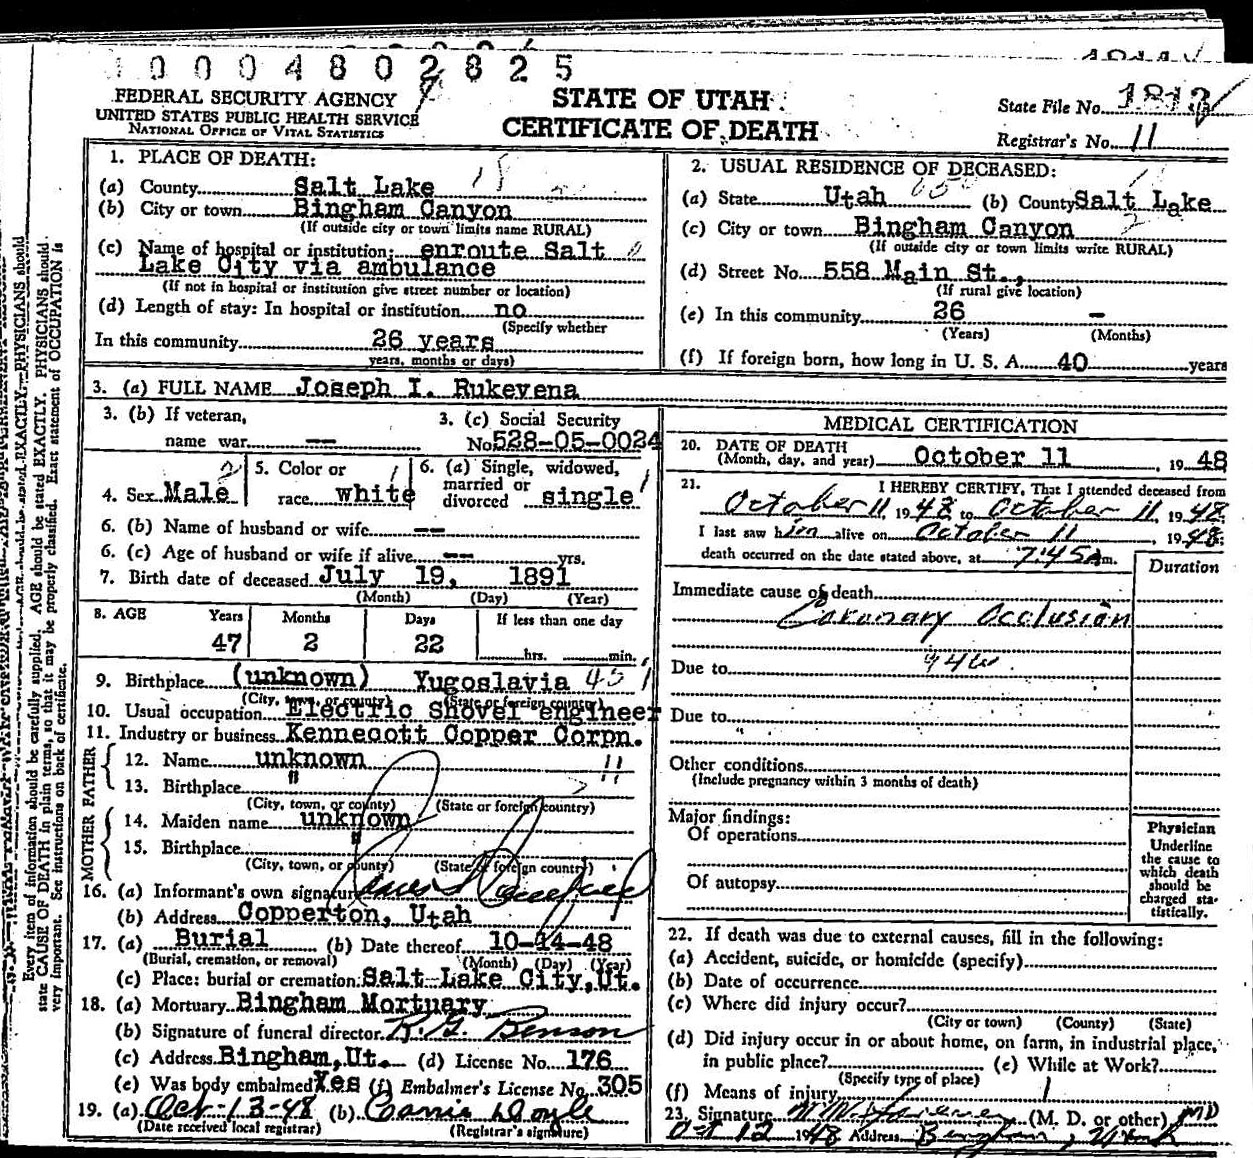 10004802825
FEDERAL SECURITY AGENCY
UNITED STATES PUBLIC HEALTH SERVICE
NATIONAL OFFICE OF VITAL STATISTICS
STATE OF UTAH
CERTIFICATE OF DEATH
State File No. 1812
Registrar's No. 11
1. PLACE OF DEATH:
(a) County Salt Lake
(b) City or town Bingham Canyon
(If outside city or town limits name RURAL)
(c) Name of hospital or institution: enroute Salt
Lake City via ambulance
(If not in hospital or institution give street number or location)
(d) Length of stay: In hospital or institution no
(Specify whether
In this community 26 years
years, months or days)
2. USUAL RESIDENCE OF DECEASED:
(a) State Utah (b) County Salt Lake
(c) City or town Bingham Canyon
(If outside city or town limits write RURAL)
(d) Street No. 558 Main St.,
(If rural give location)
(e) In this community 26 -
(Years) (Months)
(f) If foreign born, how long in U. S. A. 40 years
3. (a) FULL NAME Joseph I. Rukevena
3. (b) If veteran,
name war --
3. (c) Social Security
No. 528-05-0024
4. Sex Male
5. Color or
race white
6. (a) Single, widowed,
married or
divorced single
6. (b) Name of husband or wife --
6. (c) Age of husband or wife if alive -- yrs.
7. Birth date of deceased July 19, 1891
(Month) (Day) (Year)
8. AGE Years Months Days If less than one day
47 2 22 hrs. min.
9. Birthplace (unknown) Yugoslavia 451
(City, town, or county) (State or foreign country)
10. Usual occupation Electric Shovel engineer
11. Industry or business Kennecott Copper Corpn.
FATHER
12. Name unknown
13. Birthplace "
(City, town, or county) (State or foreign country)
MOTHER
14. Maiden name unknown
15. Birthplace "
(City, town, or county) (State or foreign country)
16. (a) Informant's own signature
(b) Address Copperton, Utah
17. (a) Burial (b) Date thereof 10-14-48
(Burial, cremation, or removal) (Month) (Day) (Year)
(c) Place: burial or cremation: Salt Lake City, Ut.
18. (a) Mortuary Bingham Mortuary
(b) Signature of funeral director R. G. Benson
(c) Address Bingham, Ut. (d) License No. 176
(e) Was body embalmed Yes (f) Embalmer's License No. 305
19. (a) Oct-13-48 (b) Carrie Doyle
(Date received local registrar) (Registrar's signature)
MEDICAL CERTIFICATION
20. DATE OF DEATH
(Month, day, and year) October 11, 1948
21. I HEREBY CERTIFY, That I attended deceased from
October 11, 1948 to October 11, 1948
I last saw him alive on October 11, 1948;
death occurred on the date stated above, at 7:45 a m.
Duration
Immediate cause of death
Coronary Occlusion
Due to
Due to
Other conditions
(Include pregnancy within 3 months of death)
Major findings:
Of operations
Of autopsy
Physician
Underline
the cause to
which death
should be
charged sta-
tistically.
22. If death was due to external causes, fill in the following:
(a) Accident, suicide, or homicide (specify)
(b) Date of occurrence
(c) Where did injury occur?
(City or town) (County) (State)
(d) Did injury occur in or about home, on farm, in industrial place,
in public place? (e) While at Work?
(Specify type of place)
(f) Means of injury
23. Signature (M. D. or other) MD
Oct 12 1948 Address Bingham, Utah
Every item of information should be carefully supplied. AGE should be stated EXACTLY. PHYSICIANS should
state CAUSE OF DEATH in plain terms, so that it may be properly classified. Exact statement of OCCUPATION is
very important. See instructions on back of certificate.